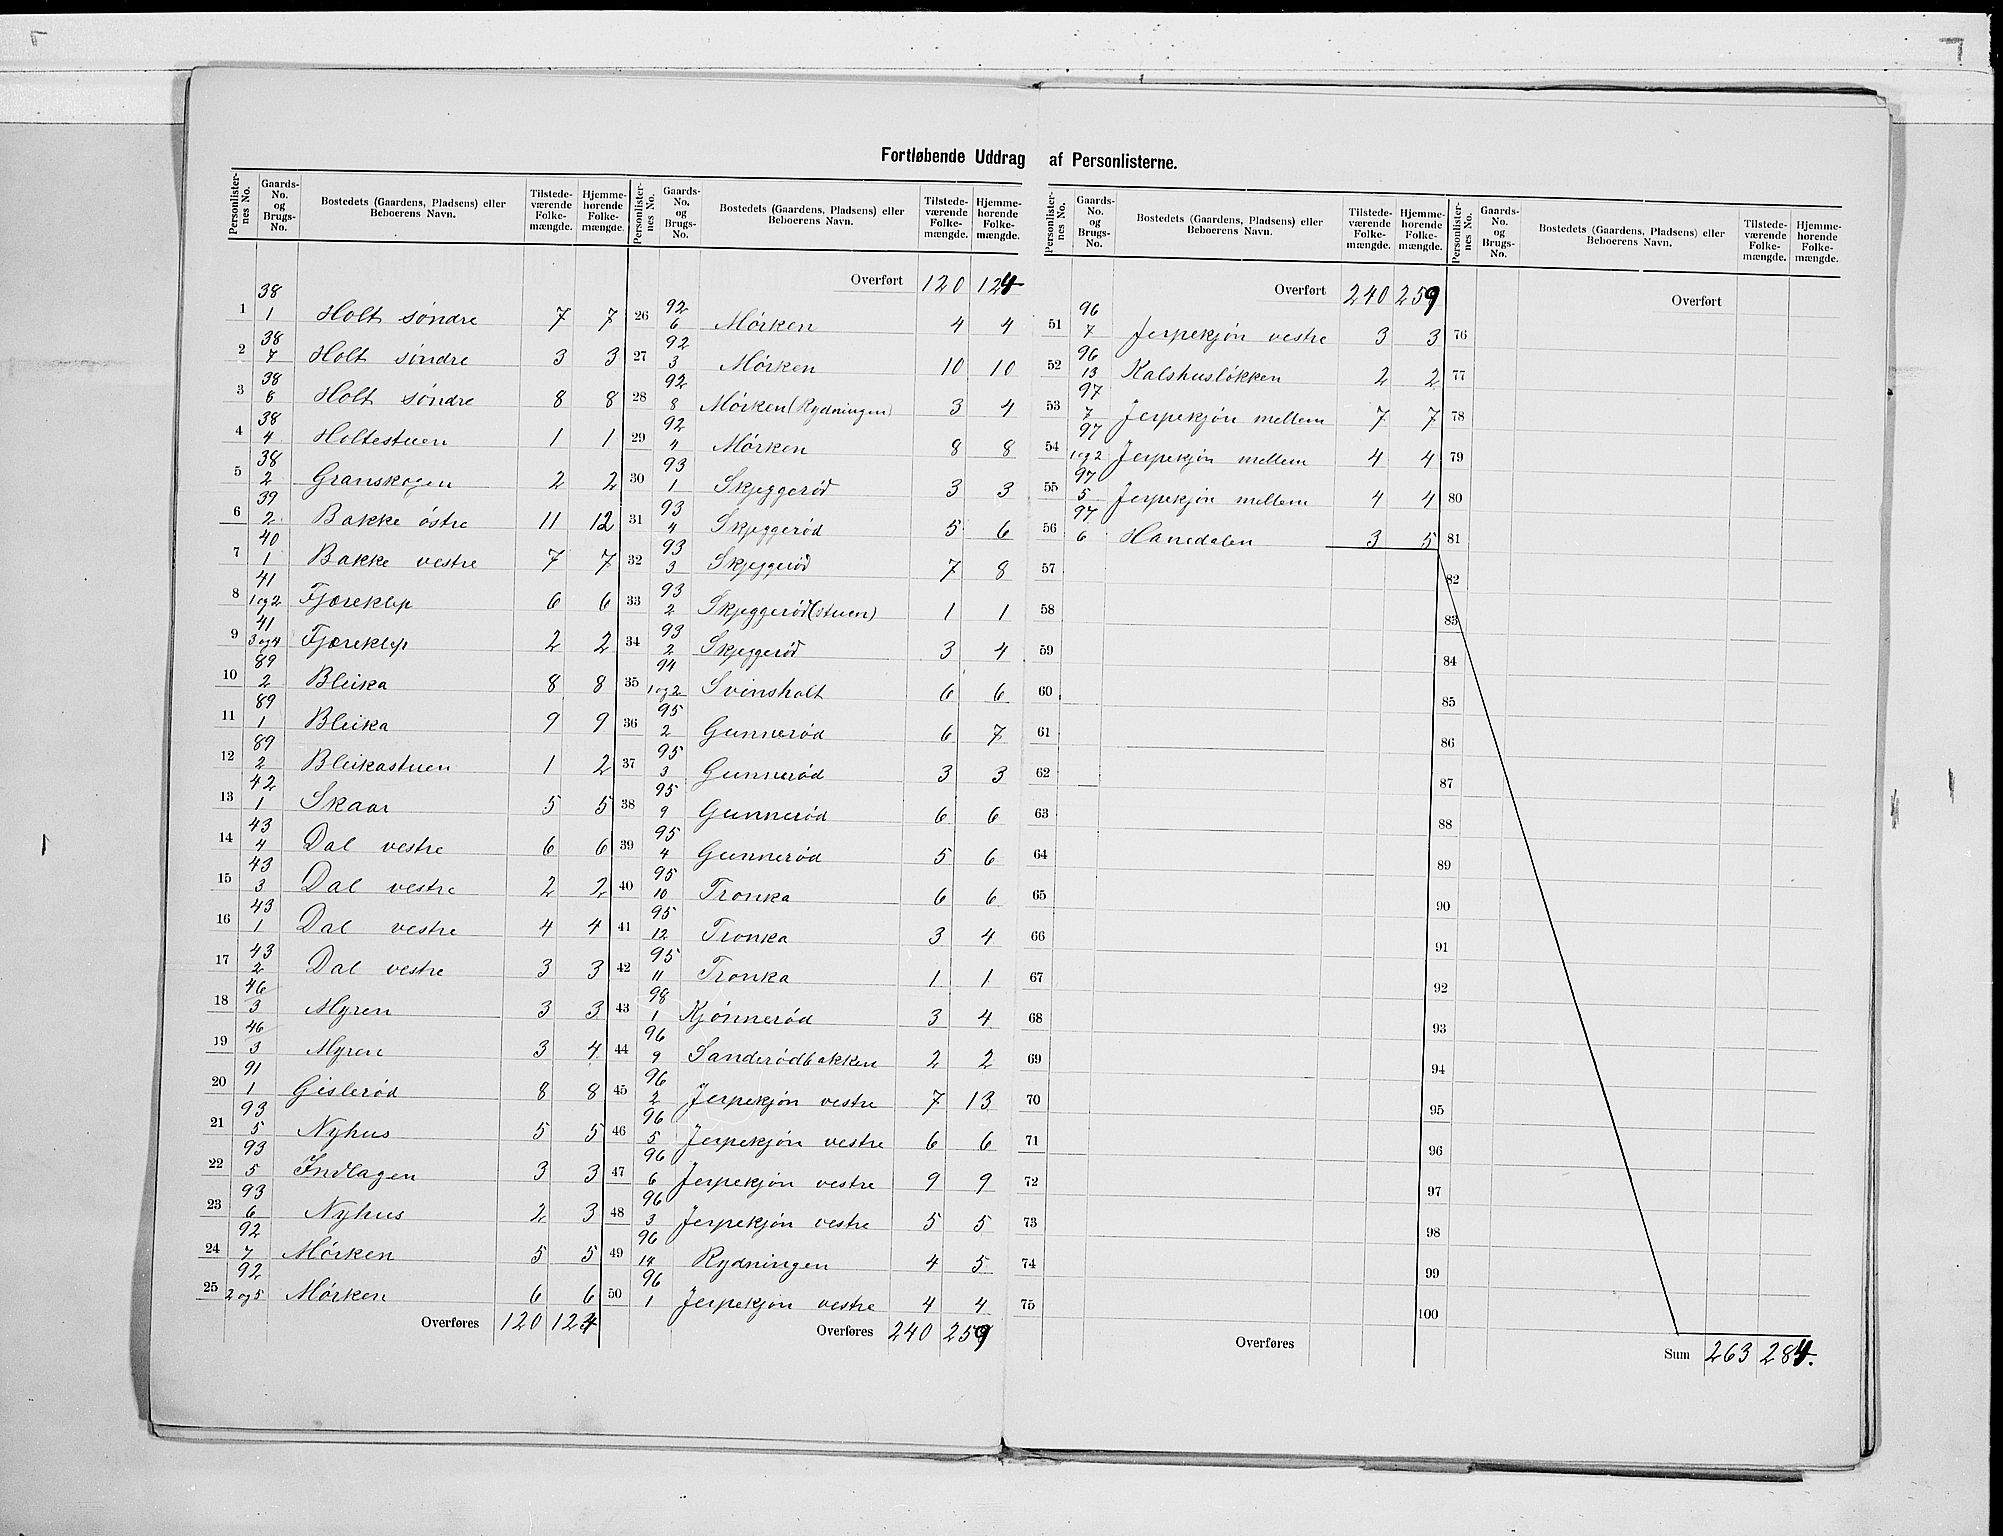 Fortløbende Uddrag af Personlisterne.
Personlister-nes No. | Gaards-No. og Brugs-No. | Bostedets (Gaardens, Pladsens) eller Beboerens Navn. | Tilstede-værende Folke-mængde. | Hjemme-hørende Folke-mængde.
1 | 38 1 | Holt søndre | 7 | 7
2 | 38 7 | Holt søndre | 3 | 3
3 | 38 8 | Holt søndre | 8 | 8
4 | 38 4 | Holtestuen | 1 | 1
5 | 38 2 | Granskogen | 2 | 2
6 | 39 2 | Bakke østre | 11 | 12
7 | 40 1 | Bakke vestre | 7 | 7
8 | 41 1 og 2 | Fjæreklep | 6 | 6
9 | 41 3 og 4 | Fjæreklep | 2 | 2
10 | 89 2 | Bleika | 8 | 8
11 | 89 1 | Bleika | 9 | 9
12 | 89 2 | Bleikastuen | 1 | 2
13 | 42 1 | Skaar | 5 | 5
14 | 43 4 | Dal vestre | 6 | 6
15 | 43 3 | Dal vestre | 2 | 2
16 | 43 1 | Dal vestre | 4 | 4
17 | 43 2 | Dal vestre | 3 | 3
18 | 46 3 | Myren | 3 | 3
19 | 46 3 | Myren | 3 | 4
20 | 91 1 | Gislerød | 8 | 8
21 | 93 5 | Nyhus | 5 | 5
22 | 93 5 | Indlagen | 3 | 3
23 | 93 6 | Nyhus | 2 | 3
24 | 92 7 | Mørken | 5 | 5
25 | 92 2 og 5 | Mørken | 6 | 6
Overføres 120 124
Personlister-nes No. | Gaards-No. og Brugs-No. | Bostedets (Gaardens, Pladsens) eller Beboerens Navn. | Tilstede-værende Folke-mængde. | Hjemme-hørende Folke-mængde.
Overført 120 124
26 | 92 6 | Mørken | 4 | 4
27 | 92 3 | Mørken | 10 | 10
28 | 92 8 | Mørken (Rydningen) | 3 | 4
29 | 92 4 | Mørken | 8 | 8
30 | 93 1 | Skjeggerød | 3 | 3
31 | 93 4 | Skjeggerød | 5 | 6
32 | 93 3 | Skjeggerød | 7 | 8
33 | 93 2 | Skjeggerød (stuen) | 1 | 1
34 | 93 2 | Skjeggerød | 3 | 4
35 | 94 1 og 2 | Svinsholt | 6 | 6
36 | 95 2 | Gunnerød | 6 | 7
37 | 95 3 | Gunnerød | 3 | 3
38 | 95 9 | Gunnerød | 6 | 6
39 | 95 4 | Gunnerød | 5 | 6
40 | 95 10 | Tronka | 6 | 6
41 | 95 12 | Tronka | 3 | 4
42 | 95 11 | Tronka | 1 | 1
43 | 98 1 | Kjønnerød | 3 | 4
44 | 96 9 | Sanderødbakken | 2 | 2
45 | 96 2 | Jerpekjøn vestre | 7 | 13
46 | 96 5 | Jerpekjøn vestre | 6 | 6
47 | 96 6 | Jerpekjøn vestre | 9 | 9
48 | 96 3 | Jerpekjøn vestre | 5 | 5
49 | 96 14 | Rydningen | 4 | 5
50 | 96 1 | Jerpekjøn vestre | 4 | 4
Overføres 240 259
Personlister-nes No. | Gaards-No. og Brugs-No. | Bostedets (Gaardens, Pladsens) eller Beboerens Navn. | Tilstede-værende Folke-mængde. | Hjemme-hørende Folke-mængde.
Overført 240 259
51 | 96 7 | Jerpekjøn vestre | 3 | 3
52 | 96 13 | Kalshusløkken | 2 | 2
53 | 97 7 | Jerpekjøn mellem | 7 | 7
54 | 97 1 og 2 | Jerpekjøn mellem | 4 | 4
55 | 97 5 | Jerpekjøn mellem | 4 | 4
56 | 97 6 | Hanedalen | 3 | 5
57
58
59
60
61
62
63
64
65
66
67
68
69
70
71
72
73
74
75
Overføres
Personlister-nes No. | Gaards-No. og Brugs-No. | Bostedets (Gaardens, Pladsens) eller Beboerens Navn. | Tilstede-værende Folke-mængde. | Hjemme-hørende Folke-mængde.
Overført
76
77
78
79
80
81
82
83
84
85
86
87
88
89
90
91
92
93
94
95
96
97
98
99
100
Sum 263 284.